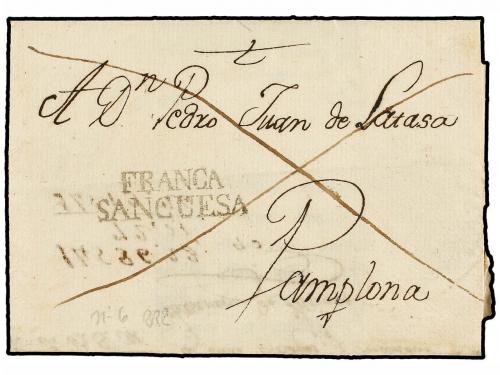 A Dn Pedro Juan de Latasa
FRANCA
SANGUESA
Pamplona